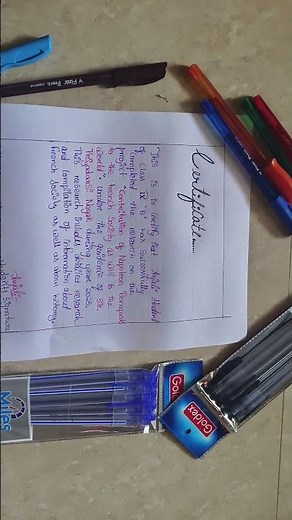 Certificate......
"This is to certify that Anjali student
of class IX 'B' has successfully
completed the research on the
project "Contribution of Napoleon Bonapart
to the French Society as well as the
world" under the guidance of Sir
Nayak during year 2025.
This research includes detailed research
and compilation of information about
French Society as well as about
Anjali
Student's signature
Flair
Goldex
Goldex
Miles